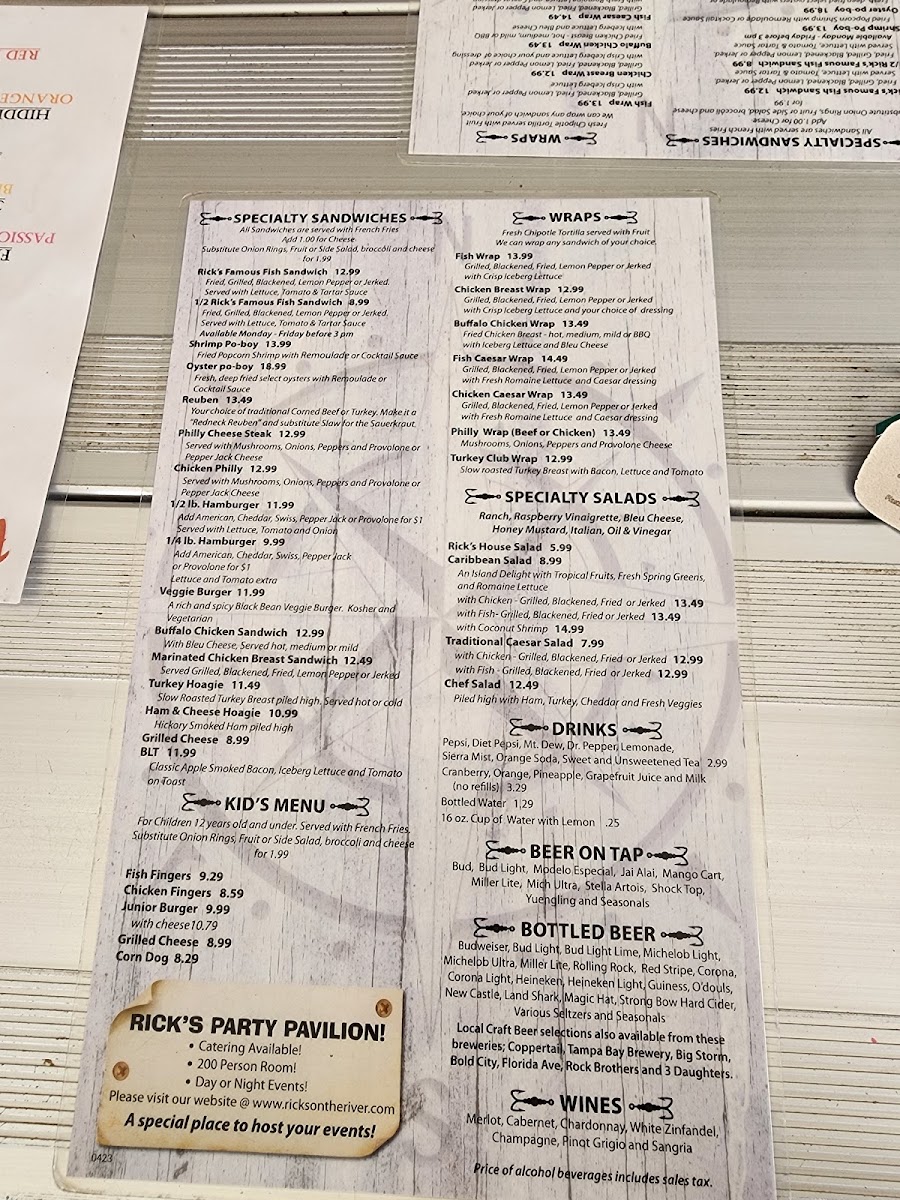 SPECIALTY SANDWICHES
All Sandwiches are served with French Fries
Add 1.00 for Cheese
Substitute Onion Rings, Fruit or Side Salad, broccoli and cheese
for 1.99
Rick's Famous Fish Sandwich 12.99
Fried, Grilled, Blackened, Lemon Pepper or Jerked.
Served with Lettuce, Tomato & Tartar Sauce
1/2 Rick's Famous Fish Sandwich 8.99
Fried, Grilled, Blackened, Lemon Pepper or Jerked.
Served with Lettuce, Tomato & Tartar Sauce
Available Monday - Friday before 3 pm
Shrimp Po-boy 13.99
Fried Popcorn Shrimp with Remoulade or Cocktail Sauce
Oyster po-boy 18.99
Fresh, deep fried select oysters with Remoulade or
Cocktail Sauce
Reuben 13.49
Your choice of traditional Corned Beef or Turkey. Make it a
"Redneck Reuben" and substitute Slaw for the Sauerkraut.
Philly Cheese Steak 12.99
Served with Mushrooms, Onions, Peppers and Provolone or
Pepper Jack Cheese
Chicken Philly 12.99
Served with Mushrooms, Onions, Peppers and Provolone or
Pepper Jack Cheese
1/2 lb. Hamburger 11.99
Add American, Cheddar, Swiss, Pepper Jack or Provolone for $1
Served with Lettuce, Tomato and Onion
1/4 lb. Hamburger 9.99
Add American, Cheddar, Swiss, Pepper Jack
or Provolone for $1
Lettuce and Tomato extra
Veggie Burger 11.99
A rich and spicy Black Bean Veggie Burger. Kosher and
Vegetarian
Buffalo Chicken Sandwich 12.99
With Bleu Cheese, Served hot, medium or mild
Marinated Chicken Breast Sandwich 12.49
Served Grilled, Blackened, Fried, Lemon Pepper or Jerked
Turkey Hoagie 11.49
Slow Roasted Turkey Breast piled high. Served hot or cold
Ham & Cheese Hoagie 10.99
Hickory Smoked Ham piled high
Grilled Cheese 8.99
BLT 11.99
Classic Apple Smoked Bacon, Iceberg Lettuce and Tomato
on Toast
KID'S MENU
For Children 12 years old and under. Served with French Fries.
Substitute Onion Rings, Fruit or Side Salad, broccoli and cheese
for 1.99
Fish Fingers 9.29
Chicken Fingers 8.59
Junior Burger 9.99
with cheese10.79
Grilled Cheese 8.99
Corn Dog 8.29
RICK'S PARTY PAVILION!
• Catering Available!
• 200 Person Room!
• Day or Night Events!
Please visit our website @ www.ricksontheriver.com
A special place to host your events!
0423
WRAPS
Fresh Chipotle Tortilla served with Fruit
We can wrap any sandwich of your choice.
Fish Wrap 13.99
Grilled, Blackened, Fried, Lemon Pepper or Jerked
with Crisp Iceberg Lettuce
Chicken Breast Wrap 12.99
Grilled, Blackened, Fried, Lemon Pepper or Jerked
with Crisp Iceberg Lettuce and your choice of dressing
Buffalo Chicken Wrap 13.49
Fried Chicken Breast - hot, medium, mild or BBQ
with Iceberg Lettuce and Bleu Cheese
Fish Caesar Wrap 14.49
Grilled, Blackened, Fried, Lemon Pepper or Jerked
with Fresh Romaine Lettuce and Caesar dressing
Chicken Caesar Wrap 13.49
Grilled, Blackened, Fried, Lemon Pepper or Jerked
with Fresh Romaine Lettuce and Caesar dressing
Philly Wrap (Beef or Chicken) 13.49
Mushrooms, Onions, Peppers and Provolone Cheese
Turkey Club Wrap 12.99
Slow roasted Turkey Breast with Bacon, Lettuce and Tomato
SPECIALTY SALADS
Ranch, Raspberry Vinaigrette, Bleu Cheese,
Honey Mustard, Italian, Oil & Vinegar
Rick's House Salad 5.99
Caribbean Salad 8.99
An Island Delight with Tropical Fruits, Fresh Spring Greens,
and Romaine Lettuce
with Chicken - Grilled, Blackened, Fried or Jerked 13.49
with Fish- Grilled, Blackened, Fried or Jerked 13.49
with Coconut Shrimp 14.99
Traditional Caesar Salad 7.99
with Chicken - Grilled, Blackened, Fried or Jerked 12.99
with Fish - Grilled, Blackened, Fried or Jerked 12.99
Chef Salad 12.49
Piled high with Ham, Turkey, Cheddar and Fresh Veggies
DRINKS
Pepsi, Diet Pepsi, Mt. Dew, Dr. Pepper, Lemonade,
Sierra Mist, Orange Soda, Sweet and Unsweetened Tea 2.99
Cranberry, Orange, Pineapple, Grapefruit Juice and Milk
(no refills) 3.29
Bottled Water 1.29
16 oz. Cup of Water with Lemon .25
BEER ON TAP
Bud, Bud Light, Modelo Especial, Jai Alai, Mango Cart,
Miller Lite, Mich Ultra, Stella Artois, Shock Top,
Yuengling and Seasonals
BOTTLED BEER
Budweiser, Bud Light, Bud Light Lime, Michelob Light,
Michelob Ultra, Miller Lite, Rolling Rock, Red Stripe, Corona,
Corona Light, Heineken, Heineken Light, Guiness, O'douls,
New Castle, Land Shark, Magic Hat, Strong Bow Hard Cider,
Various Seltzers and Seasonals
Local Craft Beer selections also available from these
breweries; Coppertail, Tampa Bay Brewery, Big Storm,
Bold City, Florida Ave, Rock Brothers and 3 Daughters.
WINES
Merlot, Cabernet, Chardonnay, White Zinfandel,
Champagne, Pinot Grigio and Sangria
Price of alcohol beverages includes sales tax.
SPECIALTY SANDWICHES
All Sandwiches are served with French Fries
Add 1.00 for Cheese
Onion Rings, Fruit or Side Salad, broccoli and cheese
for 1.99
Famous Fish Sandwich 12.99
Fried, Grilled, Blackened, Lemon Pepper or Jerked
Served with Lettuce, Tomato & Tartar Sauce
Rick's Famous Fish Sandwich 8.99
Fried, Grilled, Blackened, Lemon Pepper or Jerked
Served with Lettuce, Tomato & Tartar Sauce
Available Monday - Friday before 3 pm
Shrimp Po-boy 13.99
Fried Popcorn Shrimp with Remoulade or Cocktail Sauce
Oyster po-boy 18.99
WRAPS
Fresh Chipotle Tortilla served with Fruit
We can wrap any sandwich of your choice.
Fish Wrap 13.99
Grilled, Blackened, Fried, Lemon Pepper or Jerked
with Crisp Iceberg Lettuce
Chicken Breast Wrap 12.99
Grilled, Blackened, Fried, Lemon Pepper or Jerked
with Crisp Iceberg Lettuce and your choice of dressing
Buffalo Chicken Wrap 13.49
Fried Chicken Breast - hot, medium, mild or BBQ
with Iceberg Lettuce and Bleu Cheese
Fish Caesar Wrap 14.49
Grilled, Blackened, Fried, Lemon Pepper or Jerked
RED
ORANGE
HIDDE
PASSIO